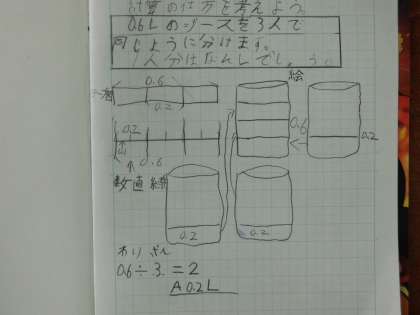 計算の仕方を考えよう。
0.6Lのジュースを3人で
同じように分けます。
1人分はなんLでしょう。
絵
0.6
0.2
0.6
0.2
0.2
0.6
数直線
0.2
0.2
わりざん
0.6÷3=2
A 0.2L